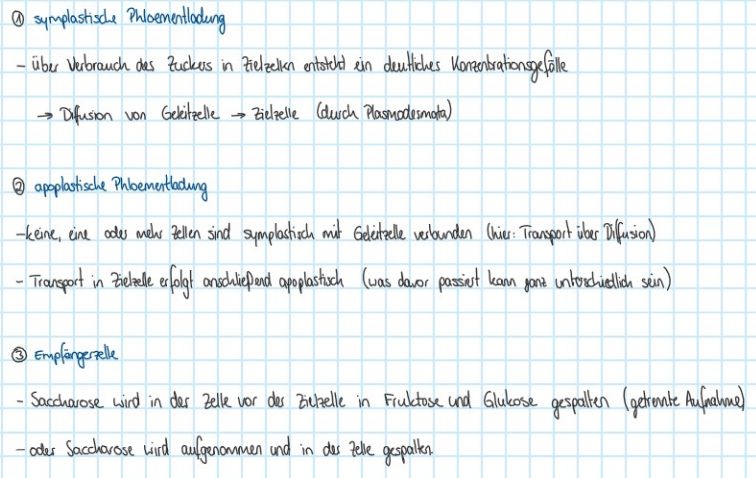 ① symplastische Phloementladung
- über Verbrauch des Zuckers in Zielzellen entsteht ein deutliches Konzentrationsgefälle
→ Difusion von Geleitzelle → Zielzelle (durch Plasmodesmata)
② apoplastische Phloementladung
- keine, eine oder mehr Zellen sind symplastisch mit Geleitzelle verbunden (hier: Transport über Diffusion)
- Transport in Zielzelle erfolgt anschließend apoplastisch (was davor passiert kann ganz unterschiedlich sein)
③ Empfängerzelle
- Saccharose wird in der Zelle vor der Zielzelle in Fruktose und Glukose gespalten (getrennte Aufnahme)
- oder Saccharose wird aufgenommen und in der Zelle gespalten